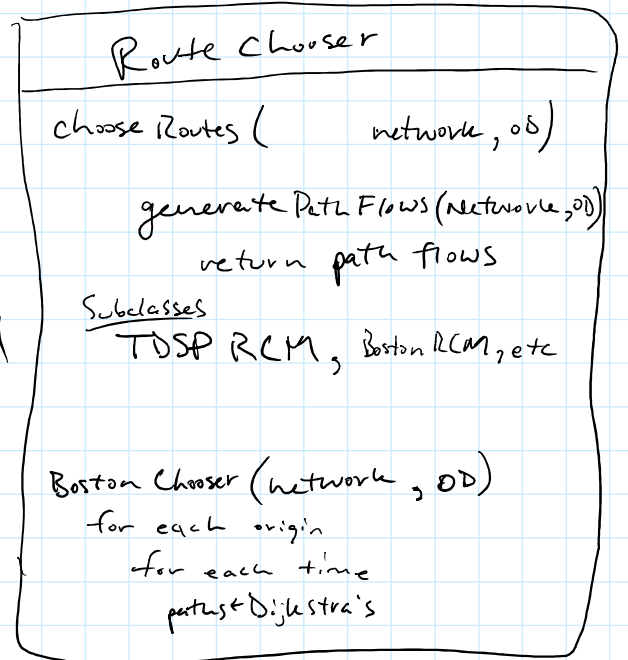 Route Chooser
choose Routes ( network, OD)
generate Path Flows (Network, OD)
return path flows
Subclasses
TDSP RCM, Boston RCM, etc
Boston Chooser (network, OD)
for each origin
for each time
paths ← Dijkstra's